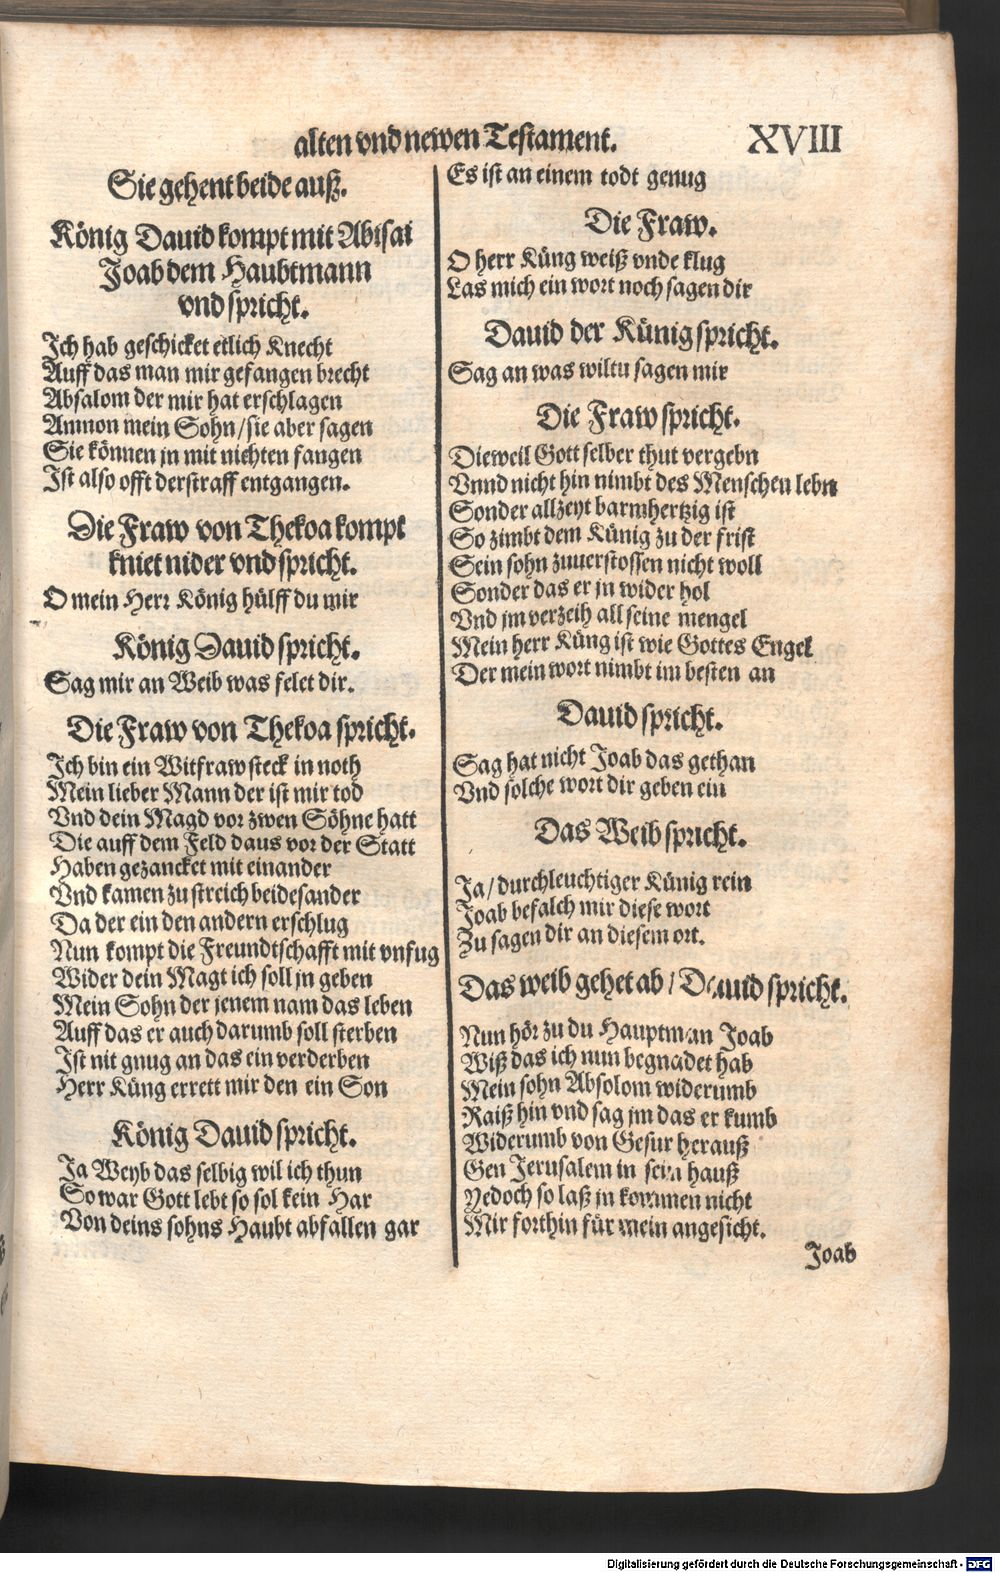 alten vnd newen Testament.
XVIII
Sie gehent beide auß.
König Dauid kompt mit Abisai
Joab dem Haubtmann
vnd spricht.
Ich hab geschicket etlich Knecht
Auff das man mir gefangen brecht
Absalom der mir hat erschlagen
Ammon mein Sohn/sie aber sagen
Sie können jn mit nichten fangen
Ist also offt der straff entgangen.
Die Fraw von Thekoa kompt
kniet nider vnd spricht.
O mein Herr König hülff du mir
König Dauid spricht.
Sag mir an Weib was felet dir.
Die Fraw von Thekoa spricht.
Ich bin ein Witfraw steck in noth
Mein lieber Mann der ist mir tod
Vnd dein Magd vor zwen Söhne hatt
Die auff dem Feld daus vor der Statt
Haben gezancket mit einander
Vnd kamen zu streich beidesander
Da der ein den andern erschlug
Nun kompt die Freundtschafft mit vnfug
Wider dein Magt ich soll jn geben
Mein Sohn der jenem nam das leben
Auff das er auch darumb soll sterben
Ist nit gnug an das ein verderben
Herr Küng errett mir den ein Son
König Dauid spricht.
Ja Weyb das selbig wil ich thun
So war Gott lebt so sol kein Har
Von deins sohns Haubt abfallen gar
Es ist an einem todt genug
Die Fraw.
O herr Küng weiß vnde klug
Las mich ein wort noch sagen dir
Dauid der Künig spricht.
Sag an was wiltu sagen mir
Die Fraw spricht.
Dieweil Gott selber thut vergebn
Vnnd nicht hin nimbt des Menschen lebn
Sonder allzeyt barmhertzig ist
So zimbt dem Künig zu der frist
Sein sohn zuuerstossen nicht woll
Sonder das er jn wider hol
Vnd jm verzeih all seine mengel
Mein herr Küng ist wie Gottes Engel
Der mein wort nimbt im besten an
Dauid spricht.
Sag hat nicht Joab das gethan
Vnd solche wort dir geben ein
Das Weib spricht.
Ja/durchleuchtiger Künig rein
Joab befalch mir diese wort
Zu sagen dir an diesem ort.
Das weib gehet ab/Dauid spricht.
Nun hör zu du Hauptman Joab
Wiß das ich nun begnadet hab
Mein sohn Absolom widerumb
Raiß hin vnd sag jm das er kumb
Widerumb von Gesur herauß
Gen Jerusalem in sein hauß
Yedoch so laß jn kommen nicht
Mir forthin für mein angesicht.
Joab
Digitalisierung gefördert durch die Deutsche Forschungsgemeinschaft - DFG